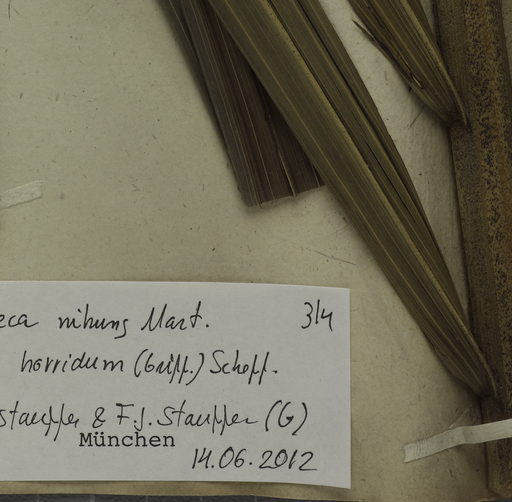 eca nibung Mart. 3/4
horridum (Griff.) Scheff.
stauffer & F.J. Stauffer (G)
München
14.06.2012